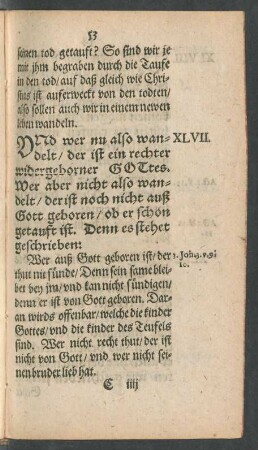 53
seinen tod getauft? So sind wir je
mit jhm begraben durch die Taufe
in den tod/ auf daß gleich wie Chri-
stus ist auferweckt von den todten/
also sollen auch wir in einem newen
leben wandeln.
Und wer nu also wan- XLVII.
delt/ der ist ein rechter
widergeborner GOttes.
Wer aber nicht also wan-
delt/ der ist noch nicht auß
Gott geboren/ ob er schon
getauft ist. Denn es stehet
geschrieben:
Wer auß Gott geboren ist/ der 1. Joh. 3. v. 9.
thut nit sünde/ Denn sein same blei- 10.
bet bey jm/ vnd kan nicht sündigen/
denn er ist von Gott geboren. Dar-
an wirds offenbar/ welche die kinder
Gottes/ vnd die kinder des Teufels
sind. Wer nicht recht thut/ der ist
nicht von Gott/ vnd wer nicht sei-
nen bruder lieb hat.
C iiij